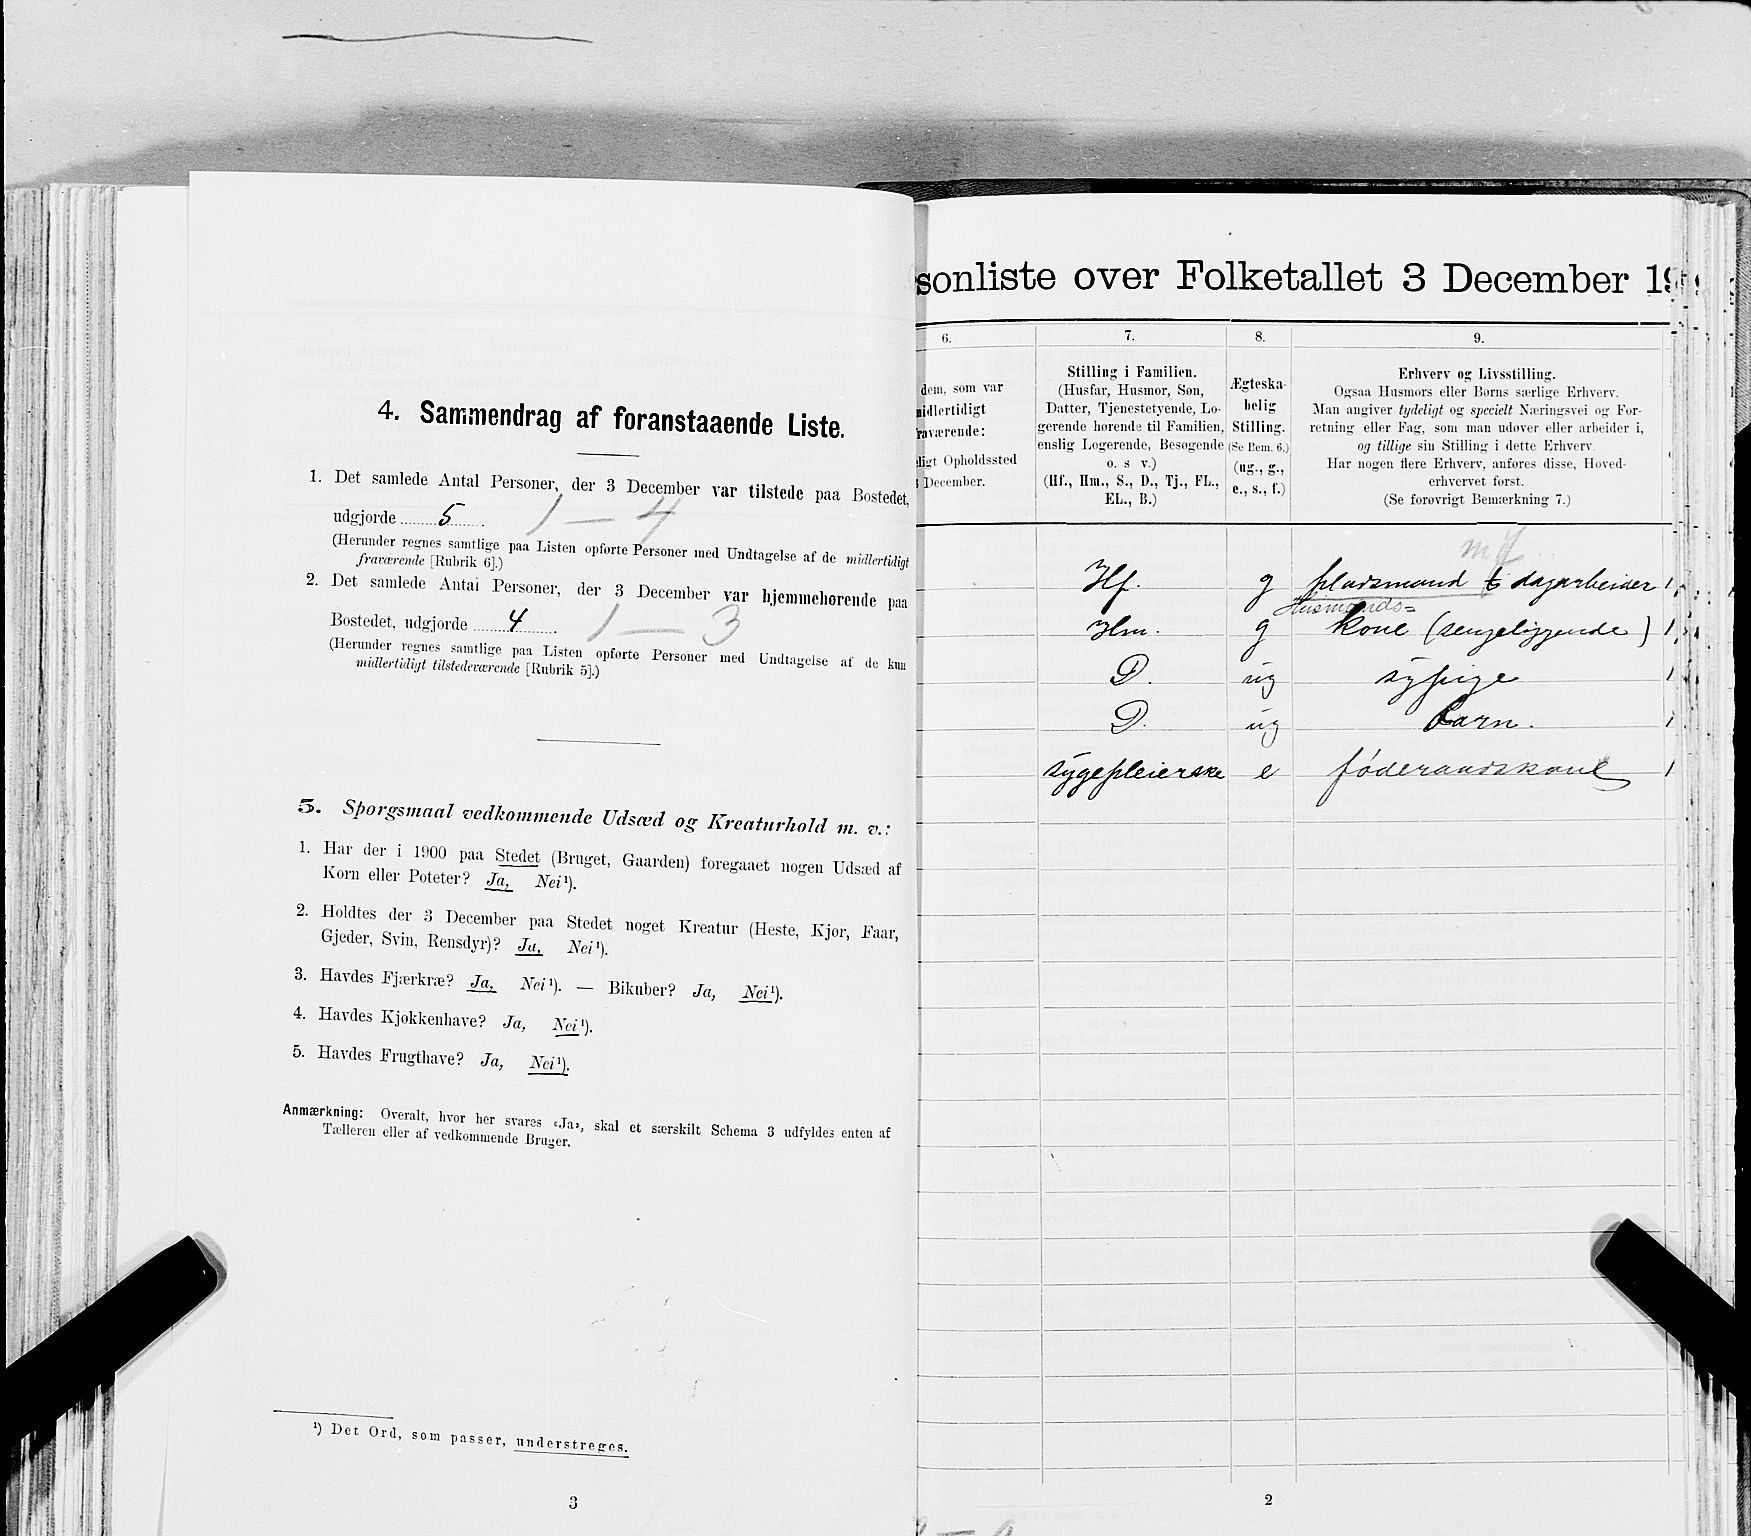 4. Sammendrag af foranstaaende Liste.
1. Det samlede Antal Personer, der 3 December var tilstede paa Bostedet,
udgjorde 5 1 — 4
(Herunder regnes samtlige paa Listen opførte Personer med Undtagelse af de midlertidigt
fraværende [Rubrik 6].)
2. Det samlede Antal Personer, der 3 December var hjemmehørende paa
Bostedet, udgjorde 4 1 — 3
(Herunder regnes samtlige paa Listen opførte Personer med Undtagelse af de kun
midlertidigt tilstedeværende [Rubrik 5].)
5. Spørgsmaal vedkommende Udsæd og Kreaturhold m. v.:
1. Har der i 1900 paa Stedet (Bruget, Gaarden) foregaaet nogen Udsæd af
Korn eller Poteter? Ja, Nei¹).
2. Holdtes der 3 December paa Stedet noget Kreatur (Heste, Kjør, Faar,
Gjeder, Svin, Rensdyr)? Ja, Nei¹).
3. Havdes Fjærkræ? Ja, Nei¹). — Bikuber? Ja, Nei¹).
4. Havdes Kjøkkenhave? Ja, Nei¹).
5. Havdes Frugthave? Ja, Nei¹).
Anmærkning: Overalt, hvor her svares «Ja», skal et særskilt Schema 3 udfyldes enten af
Tælleren eller af vedkommende Bruger.
¹) Det Ord, som passer, understreges.
3
sonliste over Folketallet 3 December 19
6.
dem, som var
midlertidigt
raværende:
ligt Opholdssted
December.
7.
Stilling i Familien.
(Husfar, Husmor, Søn,
Datter, Tjenestetyende, Lo-
gerende hørende til Familien,
enslig Logerende, Besøgende
o. s v.)
(Hf., Hm., S., D., Tj., FL.,
EL., B.)
8.
Ægteska-
belig
Stilling.
(Se Bem. 6.)
(ug., g.,
e., s., f.)
9.
Erhverv og Livsstilling.
Ogsaa Husmors eller Børns særlige Erhverv.
Man angiver tydeligt og specielt Næringsvei og For-
retning eller Fag, som man udøver eller arbeider i,
og tillige sin Stilling i dette Erhverv.
Har nogen flere Erhverv, anføres disse, Hoved-
erhvervet først.
(Se forøvrigt Bemærkning 7.)
Hf. g pladsmand & dagarbeider 1
Husmands=
Hm. g kone (sengeliggende) 1
D. ug sypige 1
D. ug barn. 1
sygepleierske e føderaadskone 1
2